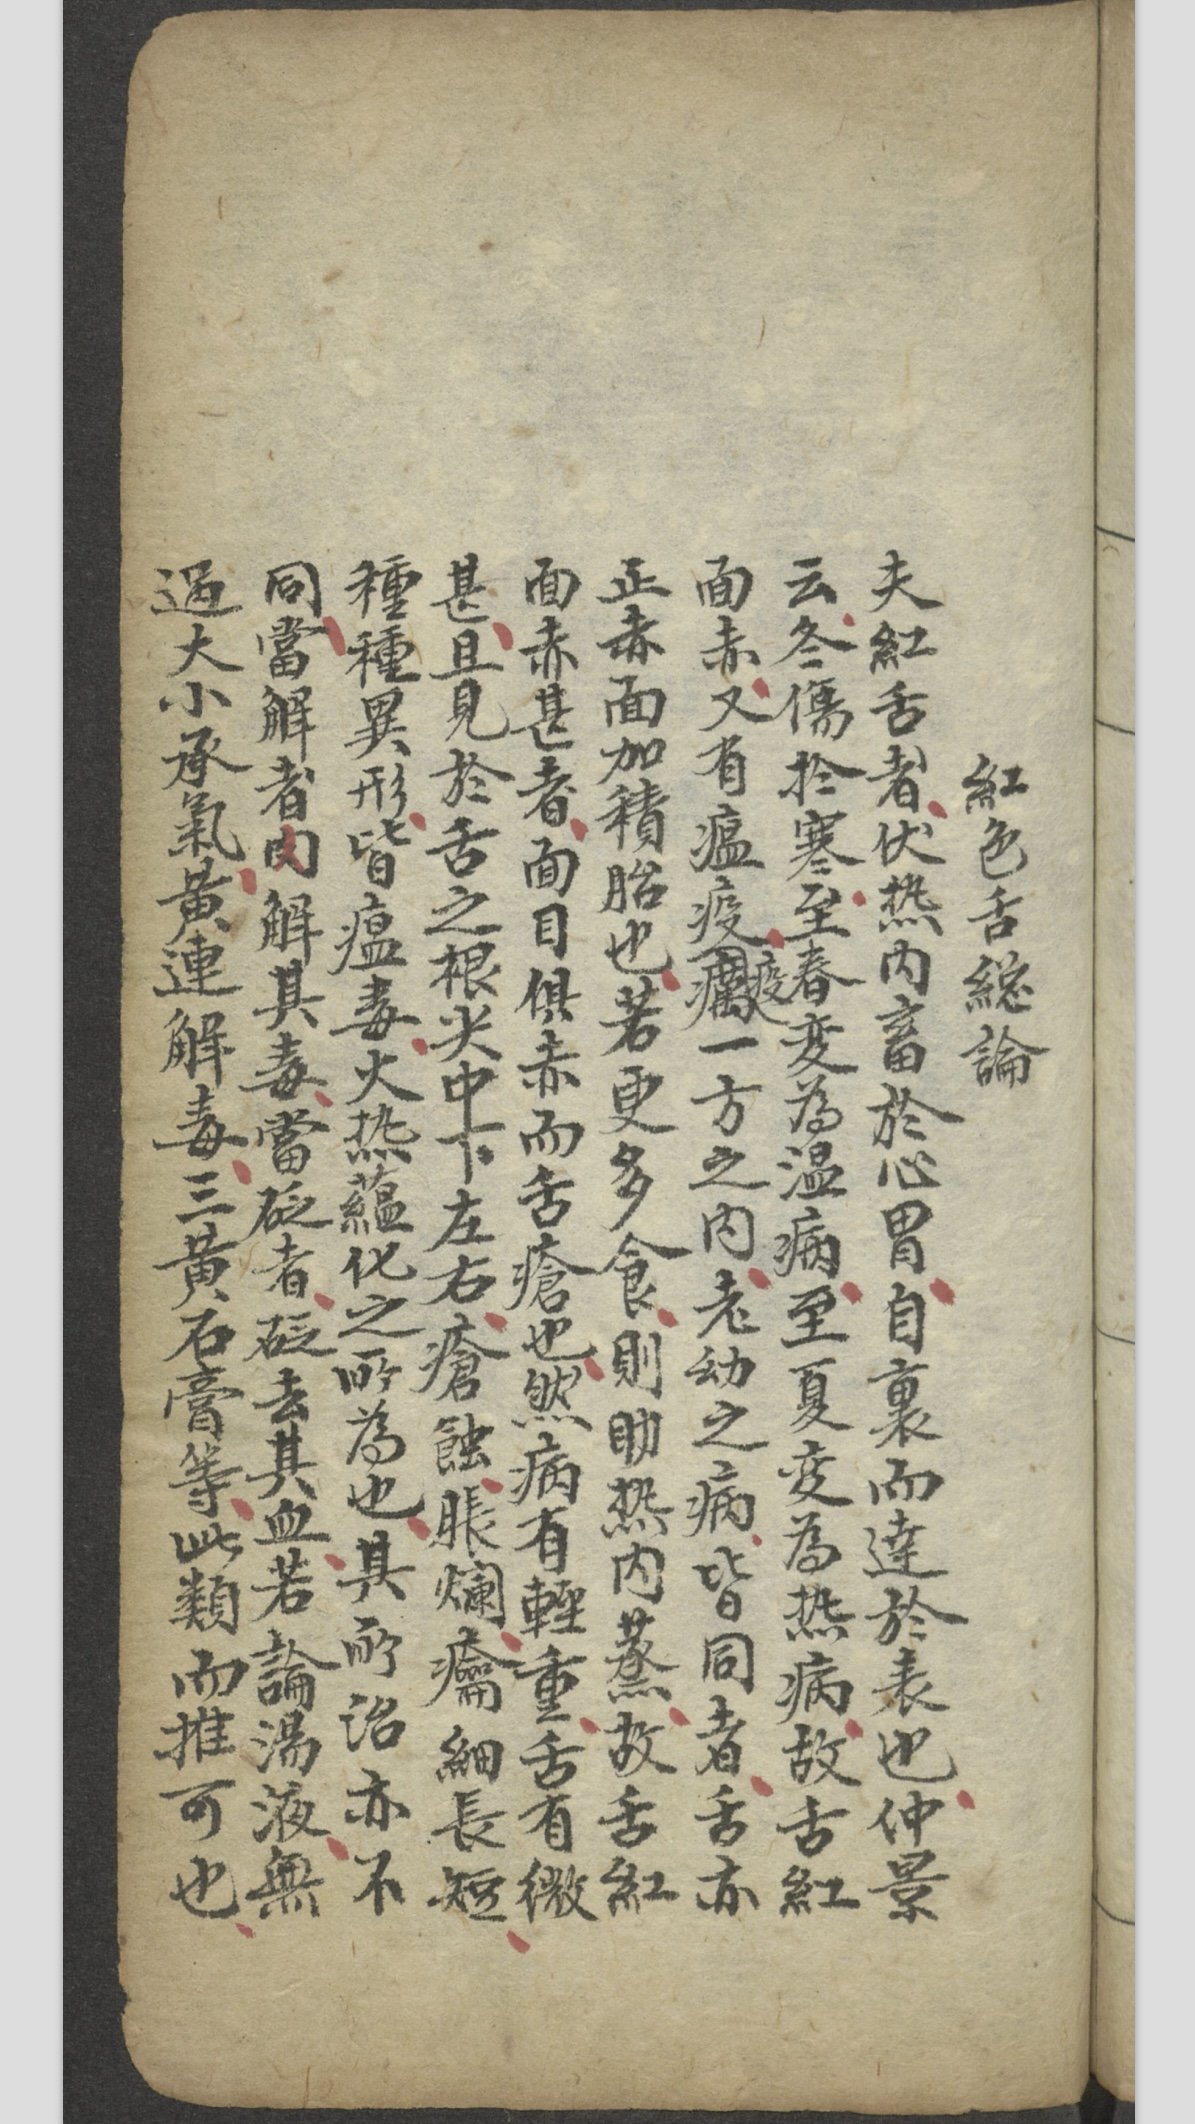 紅色舌総論
夫紅舌者伏热内畜於心胃自裏而達於表也仲景
云冬傷於寒至春变為温病至夏变為热病故舌紅
面赤又有瘟疫癘疫一方之内老幼之病皆同者舌亦
正赤面加積胎也若更多食則助热内蒸故舌紅
面赤甚者面目俱赤而舌瘡也然病有輕重舌有微
甚且見於舌之根尖中下左右瘡蝕脹爛癟細長短
種種異形皆瘟毒火热蘊化之所為也其所治亦不
同當解者内解其毒當砭者砭去其血若論湯液無
過大小承氣黃連解毒三黃石膏等此類而推可也